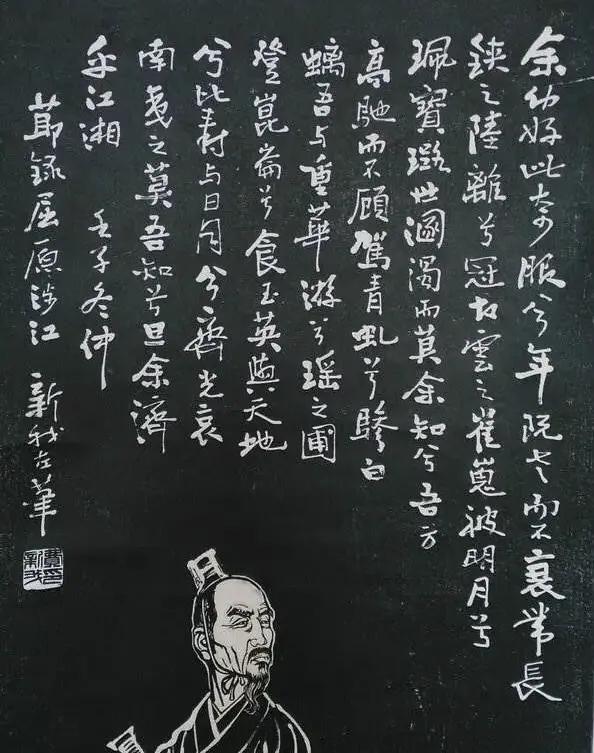 余幼好此奇服兮年既老而不衰帶長
鋏之陸離兮冠切雲之崔嵬被明月兮
珮寶璐世溷濁而莫余知兮吾方
高馳而不顧駕青虬兮驂白
螭吾与重華游兮瑶之圃
登崑崙兮食玉英與天地
兮比寿与日月兮齊光哀
南夷之莫吾知兮旦余濟
乎江湘 壬子冬仲
節録屈原涉江 新我左筆
費印新我